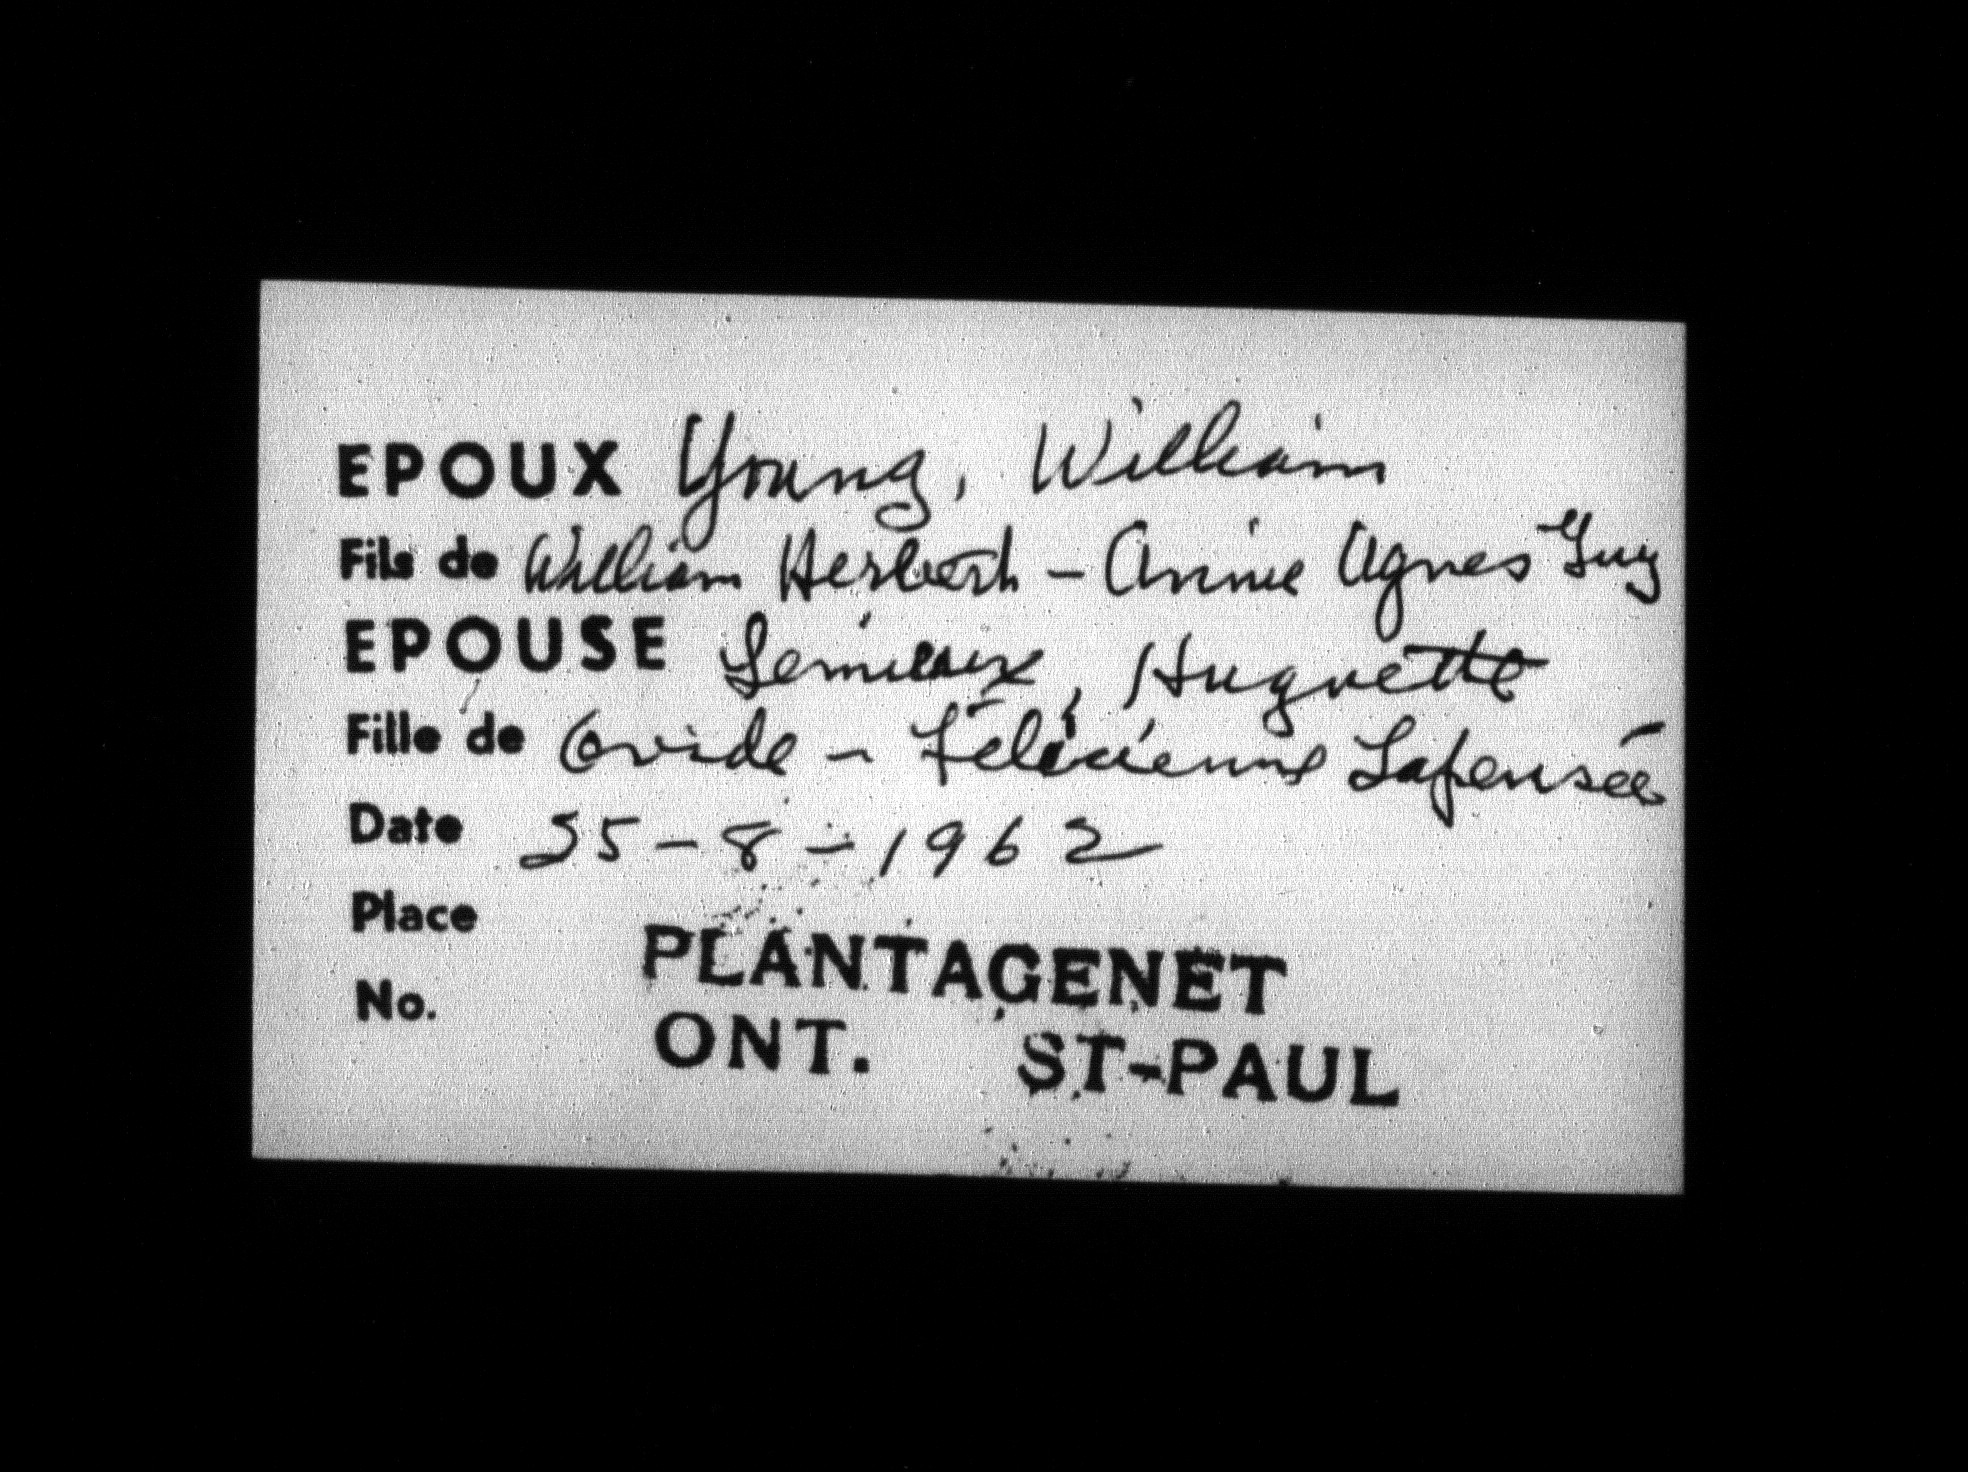 EPOUX Young, William
Fils de William Herbert - Annie Agnes Guy
EPOUSE Lemieux, Huguette
Fille de Ovide - Félicienne Lapensée
Date 25-8-1962
Place
PLANTAGENET
No.
ONT. ST-PAUL